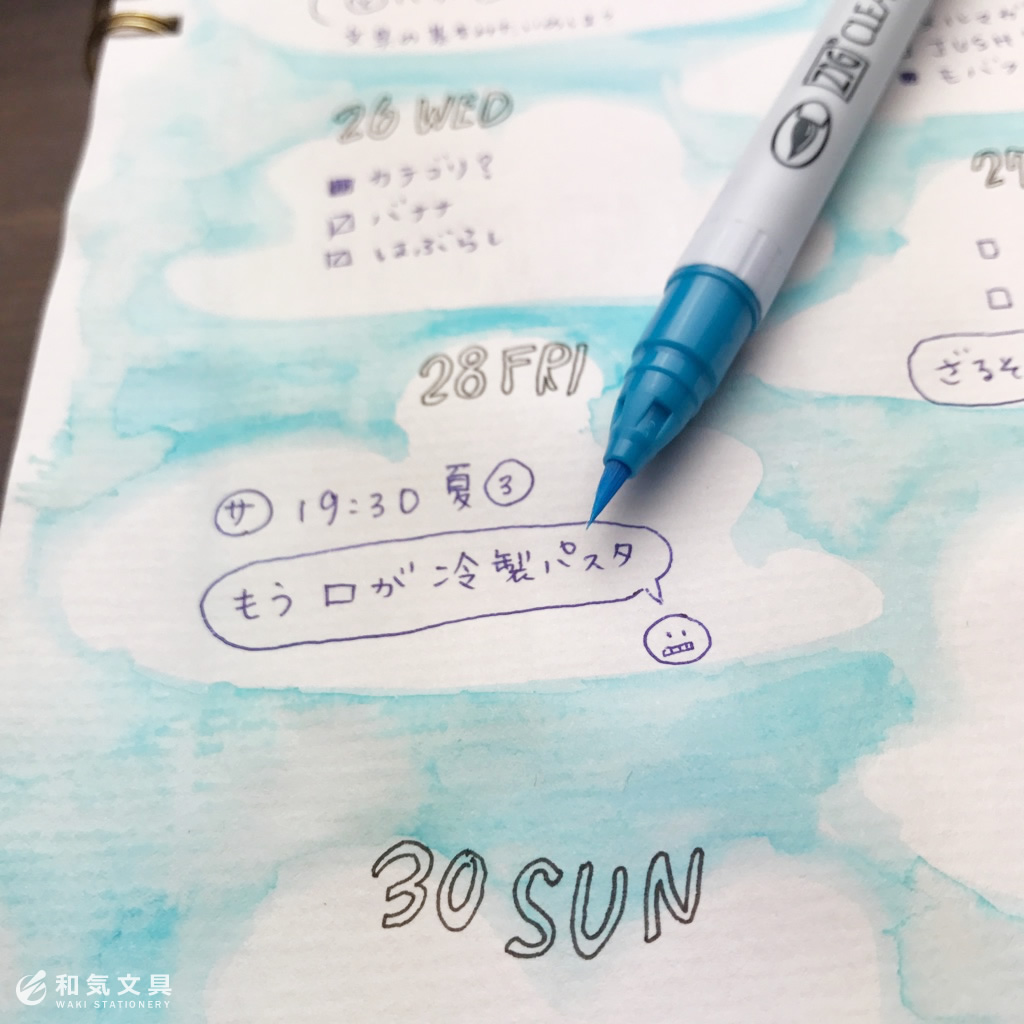 ZIG CLEA
26 WED
カテゴリ?
バナナ
はぶらし
27
28 FRI
ざるそ
サ 19:30 夏③
もう口が冷製パスタ
30 SUN
和気文具
WAKI STATIONERY